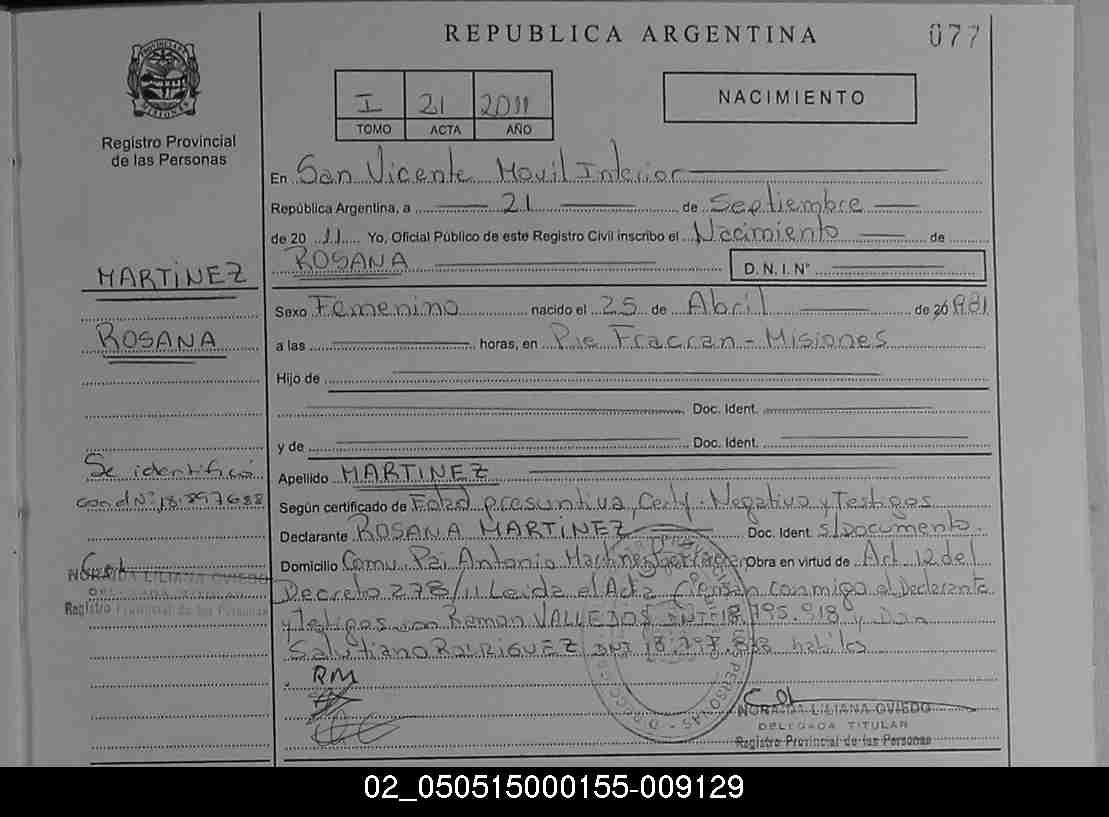 REPUBLICA ARGENTINA
077
PROVINCIA DE MISIONES
Registro Provincial
de las Personas
I 21 2011
TOMO ACTA AÑO
NACIMIENTO
En San Vicente Movil Interior
República Argentina, a 21 de Septiembre
de 20 11 Yo, Oficial Público de este Registro Civil inscribo el Nacimiento de
ROSANA D. N. I. N°
MARTINEZ
ROSANA
Sexo Femenino nacido el 25 de Abril de 1981
a las horas, en Pje Fracran - Misiones
Hijo de
Doc. Ident.
y de Doc. Ident.
Se identificó
con dNi
Apellido MARTINEZ
Según certificado de Edad presuntiva, Certf. Negativo y Testigos
Declarante ROSANA MARTINEZ Doc. Ident. S/Documento.
Domicilio Comu. Antonio Martinez Obra en virtud de Art 12 del
Decreto 278/11 Leida el Acta conmigo el Declarante
y Testigos Ramon 18.195.918 y
RODRIGUEZ DNI habiles
RM
NORAIDA LILIANA OVIEDO
DELEGADA TITULAR
Registro Provincial de las Personas
NORAIDA LILIANA OVIEDO
DELEGADA TITULAR
Registro Provincial de las Personas
02_050515000155-009129